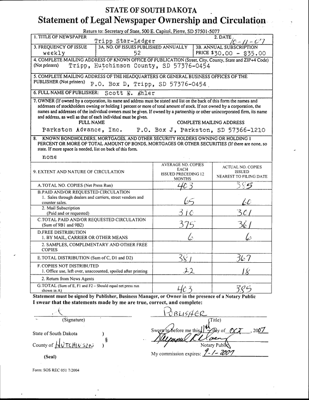 STATE OF SOUTH DAKOTA
Statement of Legal Newspaper Ownership and Circulation
Return to: Secretary of State, 500 E. Capitol, Pierre, SD 57501-5077
1. TITLE OF NEWSPAPER
Tripp Star-Ledger
2. DATE
3. FREQUENCY OF ISSUE
weekly
3A. NO. OF ISSUES PUBLISHED ANNUALLY
52
3B. ANNUAL SUBSCRIPTION
PRICE $30.00 - $35.00
4. COMPLETE MAILING ADDRESS OF KNOWN OFFICE OF PUBLICATION (Street, City, County, State and ZIP+4 Code)
(Not printer) Tripp, Hutchinson County, SD 57376-0454
5. COMPLETE MAILING ADDRESS OF THE HEADQUARTERS OR GENERAL BUSINESS OFFICES OF THE
PUBLISHER (Not printer) P.O. Box D, Tripp, SD 57376-0454
6. FULL NAME OF PUBLISHER: Scott E. Ehler
7. OWNER (If owned by a corporation, its name and address must be stated and also on the back of this form the names and
addresses of stockholders owning or holding 1 percent or more of total amount of stock. If not owned by a corporation, the
names and addresses of the individual owners must be given. If owned by a partnership or other unincorporated firm, its name
and address, as well as that of each individual must be given).
FULL NAME COMPLETE MAILING ADDRESS
Parkston Advance, Inc. P.O. Box J, Parkston, SD 57366-1210
8. KNOWN BONDHOLDERS, MORTGAGES, AND OTHER SECURITY HOLDERS OWNING OR HOLDING 1
PERCENT OR MORE OF TOTAL AMOUNT OF BONDS, MORTGAGES OR OTHER SECURITIES (If there are none, so
state. If more space is needed, list on back of this form).
none
9. EXTENT AND NATURE OF CIRCULATION
AVERAGE NO. COPIES
EACH
ISSUED PRECEDING 12
MONTHS
ACTUAL NO. COPIES
ISSUED
NEAREST TO FILING DATE
A. TOTAL NO. COPIES (Net Press Run) 403 385
B. PAID AND/OR REQUESTED CIRCULATION
1. Sales through dealers and carriers, street vendors and
counter sales. 65 60
2. Mail Subscription
(Paid and or requested) 310 301
C. TOTAL PAID AND/OR REQUESTED CIRCULATION
(Sum of 9B1 and 9B2) 375 361
D. FREE DISTRIBUTION
1. BY MAIL, CARRIER OR OTHER MEANS 6 6
2. SAMPLES, COMPLIMENTARY AND OTHER FREE
COPIES
E. TOTAL DISTRIBUTION (Sum of C, D1 and D2) 381 367
F. COPIES NOT DISTRIBUTED
1. Office use, left over, unaccounted, spoiled after printing 22 18
2. Return from News Agents
G. TOTAL (Sum of E, F1 and F2 - Should equal net press run
shown in A) 403 385
Statement must be signed by Publisher, Business Manager, or Owner in the presence of a Notary Public
I swear that the statements made by me are true, correct, and complete:
PUBLISHER
(Signature) (Title)
State of South Dakota )
Sworn to before me this day of Oct, 2007
County of HUTCHINSON )
Notary Public
(Seal)
My commission expires:
Form: SOS REC 051 7/2004